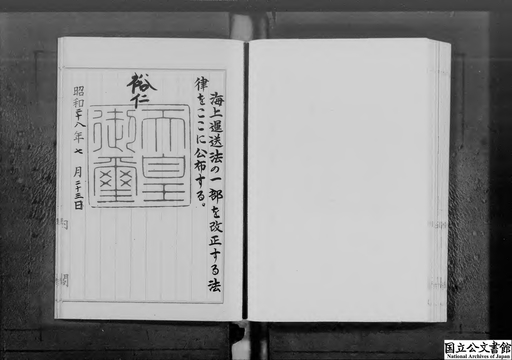 海上運送法の一部を改正する法
律をここに公布する。
裕仁
天皇
御璽
昭和二十八年七月二十三日
内閣
国立公文書館
National Archives of Japan